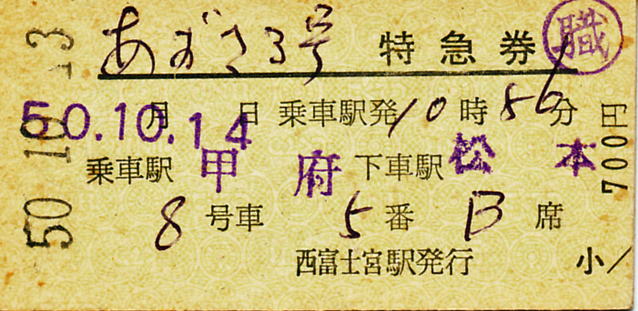 あずさ3号 特急券 職
50.10.14 月 日 乗車駅発 10 時 56 分
乗車駅 甲府 下車駅 松本
8 号車 5 番 B 席
西富士宮駅発行 小/
700円
50 10 13